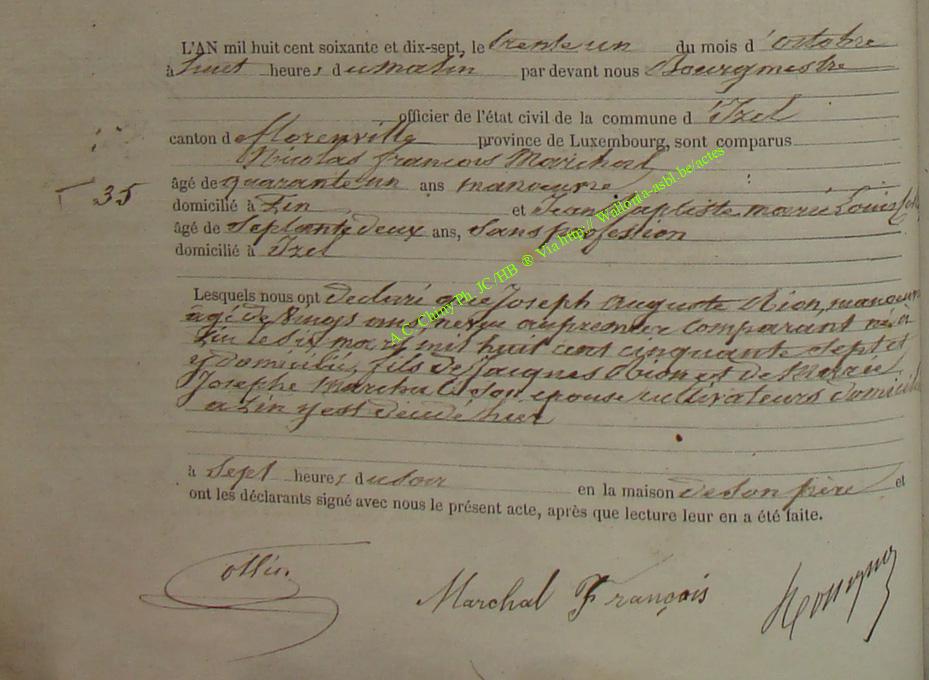 L'AN mil huit cent soixante et dix-sept, le trente un du mois d'octobre
à huit heures du matin par devant nous Bourgmestre
officier de l'état civil de la commune d'Izel
canton de Florenville province de Luxembourg, sont comparus
Nicolas francois Marchal
âgé de quarante un ans manoeuvre
35
domicilié à Pin et Jean Baptiste marie Louis
âgé de Septante deux ans, Sans profession
domicilié à Izel
Lesquels nous ont declaré que Joseph auguste manoeuvre
agé de vingt ans neveu au premier comparant né a
Pin le six mars mil huit cent cinquante sept et
y domicilié, fils de Jacques et de Marie
Josephe Marchal son epouse cultivateurs domiciliés
a Pin y est decédé hier
à Sept heures du soir en la maison de son père et
ont les déclarants signé avec nous le présent acte, après que lecture leur en a été faite.
Marchal François
A.C. Chiny Ph. JC /HB ® Via http:// Wallonia-asbl be/actes